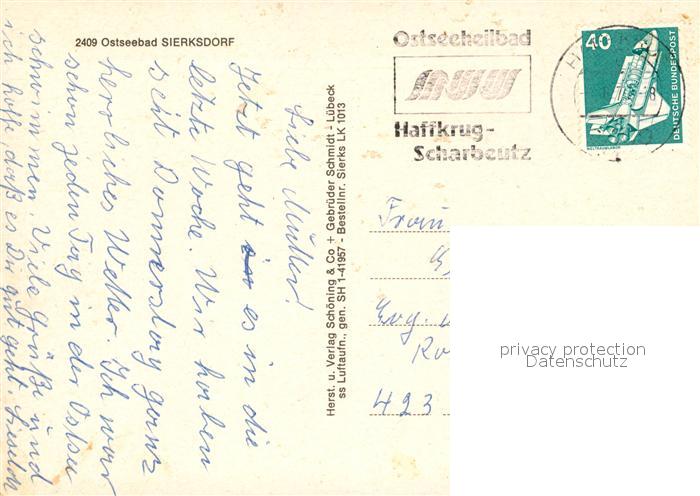 2409 Ostseebad SIERKSDORF
Liebe Mutter!
Jetzt geht es in die
letzte Woche. Wir haben
seit Donnerstag ganz
herrliches Wetter. Ich war
schon jeden Tag in der Ostsee
schwimmen. Viele Grüße und
ich hoffe, daß es Dir gut geht.
Herst. u. Verlag Schöning & Co + Gebrüder Schmidt - Lübeck
ss Luftaufn., gen. SH 1-41957 - Bestellnr. Sierks LK 1013
Ostseeheilbad
Haffkrug-
Scharbeutz
40
DEUTSCHE BUNDESPOST
WELTRAUMLABOR
Frau
Evg.
423
privacy protection
Datenschutz